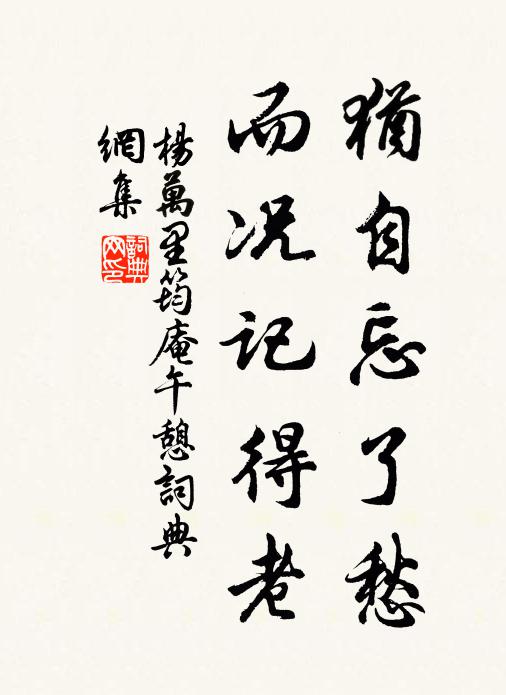 猶自忘了愁
而况记得老
楊萬里筠庵午憩詞典
網集
詞典
网印